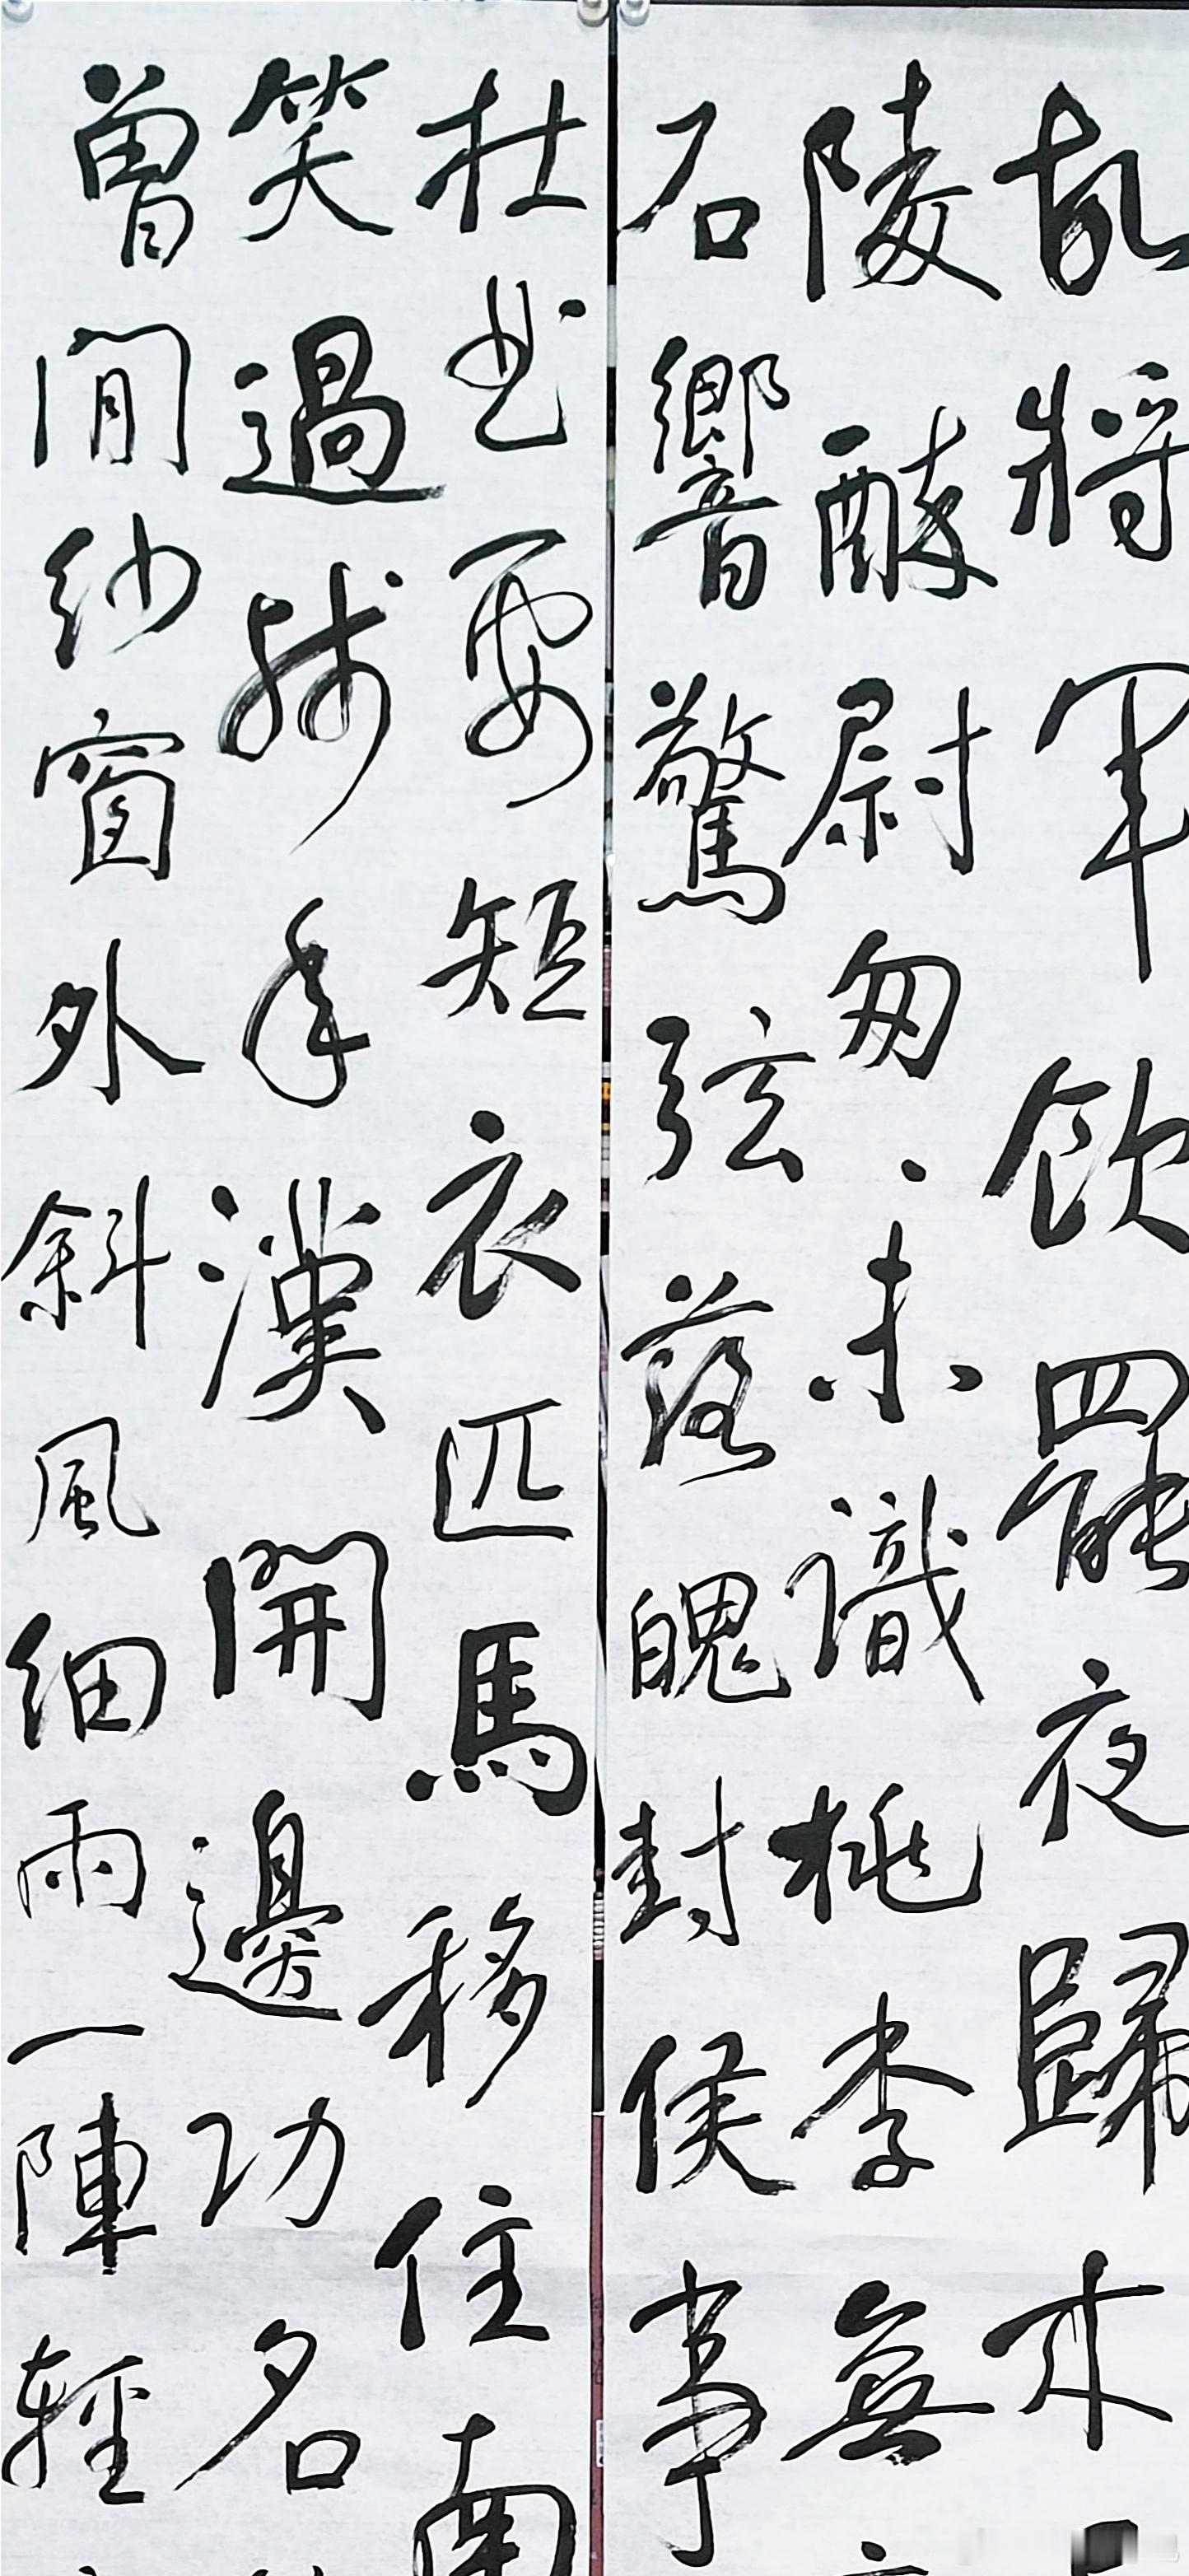 故將軍飲罷夜歸來
陵醉尉匆、未識桃李無
石響驚弦落魄封侯事
杜曲要短衣匹馬移住南
笑過殘年漢開邊功名
曾閒紗窗外斜風細雨一陣輕